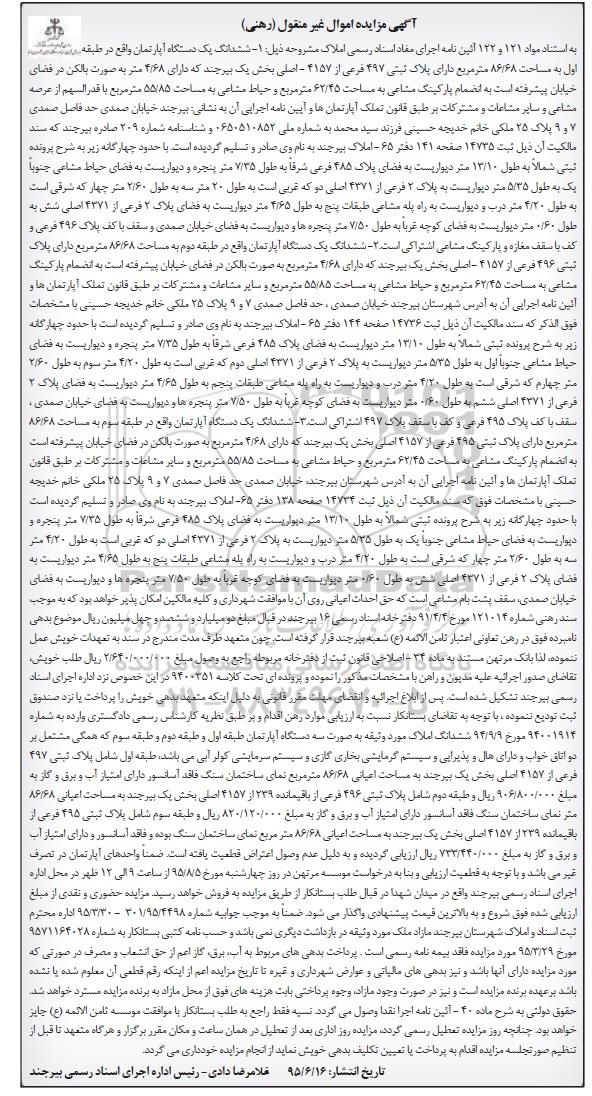 آگهی مزایده اموال غیر منقول (رهنی)
به استناد مواد ۱۲۱ و ۱۲۲ آئین نامه اجرای مفاد اسناد رسمی املاک مشروحه ذیل: ۱- ششدانگ یک دستگاه آپارتمان واقع در طبقه
اول به مساحت ۸۶/۶۸ مترمربع دارای پلاک ثبتی ۴۹۷ فرعی از ۴۱۵۷ - اصلی بخش یک بیرجند که دارای ۴/۶۸ متر به صورت بالکن در فضای
خیابان پیشرفته است به انضمام پارکینگ مشاعی به مساحت ۶۲/۴۵ مترمربع و حیاط مشاعی به مساحت ۵۵/۸۵ مترمربع با قدرالسهم از عرصه
مشاعی و سایر مشاعات و مشترکات بر طبق قانون تملک آپارتمان ها و آیین نامه اجرایی آن به نشانی: بیرجند خیابان صمدی حد فاصل صمدی
۷ و ۹ پلاک ۲۵ ملکی خانم خدیجه حسینی فرزند سید محمد به شماره ملی ۰۶۵۰۵۱۰۸۵۲ و شناسنامه شماره ۲۰۹ صادره بیرجند که سند
مالکیت آن ذیل ثبت ۱۴۷۳۵ صفحه ۱۴۱ دفتر ۶۵ - املاک بیرجند به نام وی صادر و تسلیم گردیده است. با حدود چهارگانه زیر به شرح پرونده
ثبتی شمالاً به طول ۱۳/۱۰ متر دیواریست به فضای پلاک ۴۸۵ فرعی شرقاً به طول ۷/۳۵ متر پنجره و دیواریست به فضای حیاط مشاعی جنوباً
یک به طول ۵/۳۵ متر دیواریست به پلاک ۲ فرعی از ۴۳۷۱ اصلی دو که غربی است به طول ۲۰ متر سه به طول ۲/۶۰ متر چهار که شرقی است
به طول ۴/۲۰ متر درب و دیواریست به راه پله مشاعی طبقات پنج به طول ۴/۶۵ متر دیواریست به فضای پلاک ۲ فرعی از ۴۳۷۱ اصلی شش به
طول ۰/۶۰ متر دیواریست به فضای کوچه غرباً به طول ۷/۵۰ متر پنجره ها و دیواریست به فضای خیابان صمدی و سقف با کف پلاک ۴۹۶ فرعی و
کف با سقف مغازه و پارکینگ مشاعی اشتراکی است.۲- ششدانگ یک دستگاه آپارتمان واقع در طبقه دوم به مساحت ۸۶/۶۸ مترمربع دارای پلاک
ثبتی ۴۹۶ فرعی از ۴۱۵۷ - اصلی بخش یک بیرجند که دارای ۴/۶۸ مترمربع به صورت بالکن در فضای خیابان پیشرفته است به انضمام پارکینگ
مشاعی به مساحت ۶۲/۴۵ مترمربع و حیاط مشاعی به مساحت ۵۵/۸۵ مترمربع و سایر مشاعات و مشترکات بر طبق قانون تملک آپارتمان ها و
آئین نامه اجرایی آن به آدرس شهرستان بیرجند خیابان صمدی ، حد فاصل صمدی ۷ و ۹ پلاک ۲۵ ملکی خانم خدیجه حسینی با مشخصات
فوق الذکر که سند مالکیت آن ذیل ثبت ۱۴۷۳۶ صفحه ۱۴۴ دفتر ۶۵ - املاک بیرجند به نام وی صادر و تسلیم گردیده است با حدود چهارگانه
زیر به شرح پرونده ثبتی شمالاً به طول ۱۳/۱۰ متر دیواریست به فضای پلاک ۴۸۵ فرعی شرقاً به طول ۷/۳۵ متر پنجره و دیواریست به فضای
حیاط مشاعی جنوباً اول به طول ۵/۳۵ متر دیواریست به پلاک ۲ فرعی از ۴۳۷۱ اصلی دوم که غربی است به طول ۴/۲۰ متر سوم به طول ۲/۶۰
متر چهارم که شرقی است به طول ۴/۲۰ متر درب و دیواریست به راه پله مشاعی طبقات پنجم به طول ۴/۶۵ متر دیواریست به فضای پلاک ۲
فرعی از ۴۳۷۱ اصلی ششم به طول ۰/۶۰ متر دیواریست به فضای کوچه غرباً به طول ۷/۵۰ متر پنجره ها و دیواریست به فضای خیابان صمدی ،
سقف با کف پلاک ۴۹۵ فرعی و کف با سقف پلاک ۴۹۷ اشتراکی است.۳- ششدانگ یک دستگاه آپارتمان واقع در طبقه سوم به مساحت ۸۶/۶۸
مترمربع دارای پلاک ثبتی ۴۹۵ فرعی از ۴۱۵۷ اصلی بخش یک بیرجند که دارای ۴/۶۸ مترمربع به صورت بالکن در فضای خیابان پیشرفته است
به انضمام پارکینگ مشاعی به مساحت ۶۲/۴۵ مترمربع و حیاط مشاعی به مساحت ۵۵/۸۵ مترمربع و سایر مشاعات و مشترکات بر طبق قانون
تملک آپارتمان ها و آئین نامه اجرایی آن به آدرس شهرستان بیرجند، خیابان صمدی حد فاصل صمدی ۷ و ۹ پلاک ۲۵ ملکی خانم خدیجه
حسینی با مشخصات فوق که سند مالکیت آن ذیل ثبت ۱۴۷۳۴ صفحه ۱۳۸ دفتر ۶۵- املاک بیرجند به نام وی صادر و تسلیم گردیده است
با حدود چهارگانه زیر به شرح پرونده ثبتی شمالاً به طول ۱۳/۱۰ متر دیواریست به فضای پلاک ۴۸۵ فرعی شرقاً به طول ۷/۳۵ متر پنجره و
دیواریست به فضای حیاط مشاعی جنوباً یک به طول ۵/۳۵ متر دیواریست به پلاک ۲ فرعی از ۴۳۷۱ اصلی دو که غربی است به طول ۴/۲۰ متر
سه به طول ۲/۶۰ متر چهار که شرقی است به طول ۴/۲۰ متر درب و دیواریست به راه پله مشاعی طبقات پنج به طول ۴/۶۵ متر دیواریست به
فضای پلاک ۲ فرعی از ۴۳۷۱ اصلی شش به طول ۰/۶۰ متر دیواریست به فضای کوچه غرباً به طول ۷/۵۰ متر پنجره ها و دیواریست به فضای
خیابان صمدی، سقف پشت بام مشاعی است که حق احداث اعیانی روی آن با موافقت شهرداری و کلیه مالکین امکان پذیر خواهد بود که به موجب
سند رهنی شماره ۱۲۱۰۱۴ مورخ ۹۱/۴/۴ دفترخانه اسناد رسمی ۱۶ بیرجند در قبال مبلغ دو میلیارد و ششصد و چهل میلیون ریال موضوع بدهی
نامبرده فوق در رهن تعاونی اعتبار ثامن الائمه (ع) شعبه بیرجند قرار گرفته است. چون متعهد ظرف مدت مندرج در سند به تعهدات خویش عمل
ننموده، لذا بانک مرتهن مستند به ماده ۳۴ - اصلاحی قانون ثبت از دفترخانه مربوطه راجع به وصول مبلغ ۲/۶۴۰/۰۰۰/۰۰۰ ریال طلب خویش،
تقاضای صدور اجرائیه علیه مدیون و راهن با مشخصات مذکور را نموده و پرونده ای تحت کلاسه ۹۴۰۰۳۵۱ در این خصوص نزد اداره اجرای اسناد
رسمی بیرجند تشکیل شده است. پس از ابلاغ اجرائیه و انقضای مهلت مقرر قانونی به دلیل اینکه متعهد بدهی خویش را پرداخت یا نزد صندوق
ثبت تودیع ننموده ، با توجه به تقاضای بستانکار نسبت به ارزیابی مورد رهن اقدام و بر طبق نظریه کارشناس رسمی دادگستری وارده به شماره
۹۴۰۰۱۹۱۴ مورخ ۹۴/۹/۹ ششدانگ املاک مورد وثیقه به صورت سه دستگاه آپارتمان طبقه اول و طبقه دوم و طبقه سوم که همگی مشتمل بر
دو اتاق خواب و دارای هال و پذیرایی و سیستم گرمایشی بخاری گازی و سیستم سرمایشی کولر آبی می باشد، طبقه اول شامل پلاک ثبتی ۴۹۷
فرعی از ۴۱۵۷ اصلی بخش یک بیرجند به مساحت اعیانی ۸۶/۶۸ مترمربع نمای ساختمان سنگ فاقد آسانسور دارای امتیاز آب و برق و گاز به
مبلغ ۹۰۶/۸۰۰/۰۰۰ ریال و طبقه دوم شامل پلاک ثبتی ۴۹۶ فرعی از باقیمانده ۲۳۹ از ۴۱۵۷ اصلی بخش یک بیرجند به مساحت اعیانی ۸۶/۶۸
متر نمای ساختمان سنگ فاقد آسانسور دارای امتیاز آب و برق و گاز به مبلغ ۸۲۰/۱۲۰/۰۰۰ ریال و طبقه سوم شامل پلاک ثبتی ۴۹۵ فرعی از
باقیمانده ۲۳۹ از ۴۱۵۷ اصلی بخش یک بیرجند به مساحت اعیانی ۸۶/۶۸ متر مربع نمای ساختمان سنگ بوده و فاقد آسانسور و دارای امتیاز آب
و برق و گاز به مبلغ ۷۳۳/۴۴۰/۰۰۰ ریال ارزیابی گردیده و به دلیل عدم وصول اعتراض قطعیت یافته است. ضمناً واحدهای آپارتمان در تصرف
غیر می باشد و با توجه به قطعیت ارزیابی و بنا به درخواست موسسه مرتهن در روز چهارشنبه مورخ ۹۵/۸/۵ از ساعت ۹ الی ۱۲ ظهر در محل اداره
اجرای اسناد رسمی بیرجند واقع در میدان شهدا در قبال طلب بستانکار از طریق مزایده به فروش خواهد رسید. مزایده حضوری و نقدی از مبلغ
ارزیابی شده فوق شروع و به بالاترین قیمت پیشنهادی واگذار می شود. ضمناً به موجب جوابیه شماره ۳۰۱/۹۵/۴۴۹۸ - ۹۵/۳/۳۰ اداره محترم
ثبت اسناد و املاک شهرستان بیرجند مازاد ملک مورد وثیقه در بازداشت دیگری نمی باشد و حسب نامه کتبی بستانکار به شماره ۹۵۷۱۱۶۴۰۲۸
مورخ ۹۵/۳/۲۹ مورد مزایده فاقد بیمه نامه رسمی است . پرداخت بدهی های مربوط به آب، برق، گاز اعم از حق انشعاب و مصرف در صورتی که
مورد مزایده دارای آنها باشد و نیز بدهی های مالیاتی و عوارض شهرداری و غیره تا تاریخ مزایده اعم از اینکه رقم قطعی آن معلوم شده یا نشده
باشد برعهده برنده مزایده است و نیز در صورت وجود مازاد، وجوه پرداختی بابت هزینه های فوق از محل مازاد به برنده مزایده مسترد خواهد شد.
حقوق دولتی به شرح ماده ۴۰ - آئین نامه اجرا نقدا وصول می گردد. نسیه فقط راجع به طلب بستانکار با موافقت موسسه ثامن الائمه (ع) جایز
خواهد بود. چنانچه روز مزایده تعطیل رسمی گردد، مزایده روز اداری بعد از تعطیل در همان ساعت و مکان مقرر برگزار و هرگاه متعهد تا قبل از
تنظیم صورتجلسه مزایده اقدام به پرداخت یا تعیین تکلیف بدهی خویش نماید از انجام مزایده خودداری می گردد.
تاریخ انتشار: ۹۵/۶/۱۶ غلامرضا دادی- رئیس اداره اجرای اسناد رسمی بیرجند